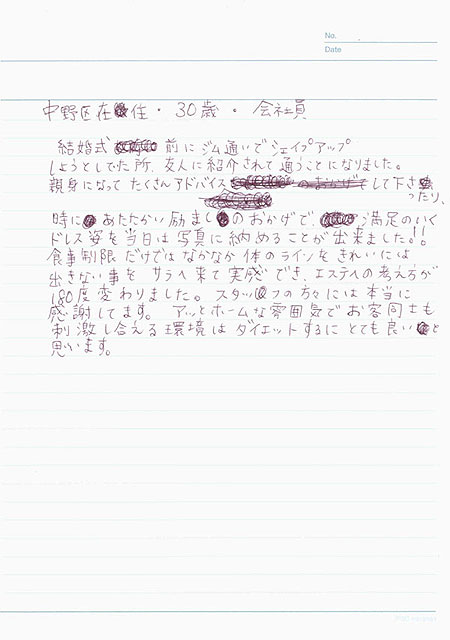 No.
Date
中野区在住・30歳・会社員
結婚式前にジム通いでシェイプアップ
しようとしてた所、友人に紹介されて通うことになりました。
親身になってたくさんアドバイスして下さ
ったり、
時にあたたかい励ましのおかげで、満足のいく
ドレス姿を当日は写真に納めることが出来ました!!
食事制限だけではなかなか体のラインをきれいには
出きない事をサラへ来て実感でき、エステへの考え方が
180度変わりました。スタッフの方々には本当に
感謝してます。アットホームな雰囲気でお客同士も
刺激し合える環境はダイエットするにとても良いと
思います。